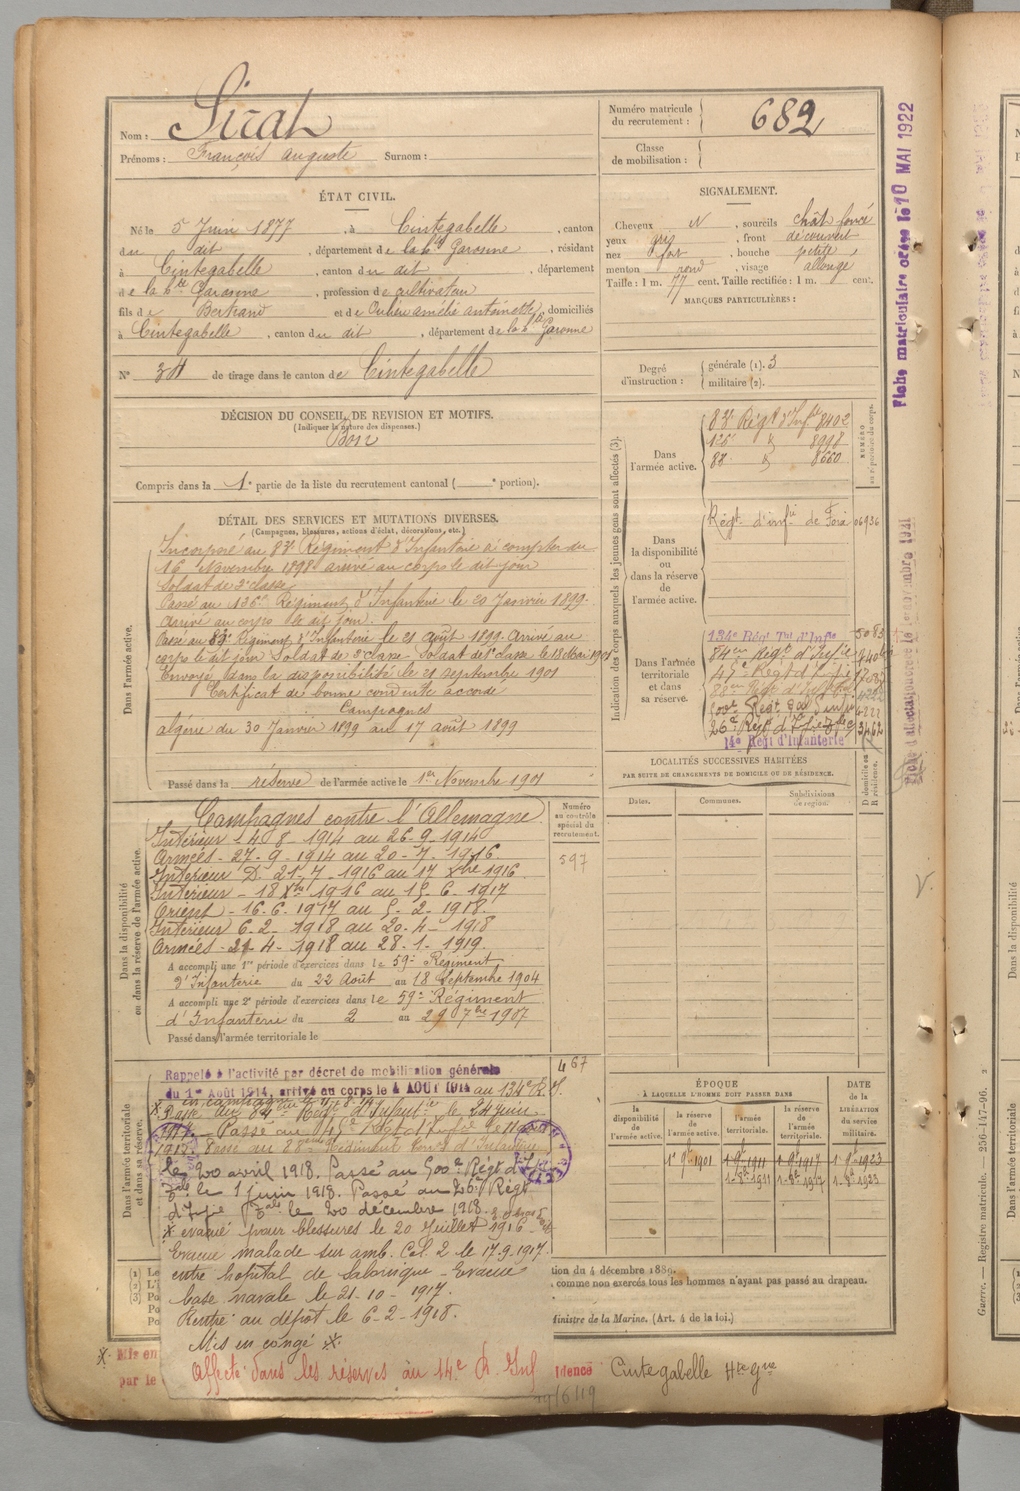 Nom : Sirat
Prénoms : François Auguste Surnom :
Numéro matricule du recrutement : 682
Classe de mobilisation :
ÉTAT CIVIL.
Né le 5 Juin 1877, à Cintegabelle, canton
du dit, département de la hte Garonne, résidant
à Cintegabelle, canton du dit, département
de la hte Garonne, profession de cultivateur
fils de Bertrand et de antoinette, domiciliés
à Cintegabelle, canton du dit, département de la hte Garonne
N° 34 de tirage dans le canton de Cintegabelle
SIGNALEMENT.
Cheveux N, sourcils chât foncé
yeux gris, front découvert
nez fort, bouche petite
menton rond, visage allongé
Taille : 1 m. 77 cent. Taille rectifiée : 1 m. cent.
MARQUES PARTICULIÈRES :
Degré d'instruction : générale (1). 3
militaire (2).
DÉCISION DU CONSEIL DE REVISION ET MOTIFS.
(Indiquer la nature des dispenses.)
Bon
Compris dans la 1e partie de la liste du recrutement cantonal ( e portion).
DÉTAIL DES SERVICES ET MUTATIONS DIVERSES.
(Campagnes, blessures, actions d'éclat, décorations, etc.)
Dans l'armée active.
Incorporé au 83e Régiment d'Infanterie à compter du
16 Novembre 1898 arrivé au corps le dit jour
Soldat de 2e classe
Passé au 126e Régiment d'Infanterie le 20 Janvier 1899.
Arrivé au corps le dit jour.
Passé au 88e Régiment d'Infanterie le 21 août 1899. Arrivé au
corps le dit jour Soldat de 2e classe. Soldat de 1e classe le 18 Mai 1901
Envoyé dans la disponibilité le 21 septembre 1901
Certificat de bonne conduite accordé
Campagnes
algérie du 30 Janvier 1899 au 17 août 1899
Passé dans la réserve de l'armée active le 1er Novembre 1901
Indication des corps auxquels les jeunes gens sont affectés (3).
NUMÉRO au répertoire du corps.
Dans l'armée active.
83e Régt d'Infie 8402
126 " 8998
88 " 8660
Dans la disponibilité ou dans la réserve de l'armée active.
Régt d'infie de Foix 06936
Dans l'armée territoriale et dans sa réserve.
134e Régt Tal d'Infie
84e Régt d'Infie
45e Régt d'Infie
88e Régt d'Inf
500e Régt
26e Régt d'Infie 3462
14e Regt d'Infanterie
LOCALITÉS SUCCESSIVES HABITÉES
PAR SUITE DE CHANGEMENTS DE DOMICILE OU DE RÉSIDENCE.
Dates. Communes. Subdivisions de région. D domicile ou R résidence.
Dans la disponibilité ou dans la réserve de l'armée active.
Numéro au contrôle spécial du recrutement.
597
Campagnes contre l'Allemagne
Intérieur - 4 8 - 1914 au 26-9-1914
Armées - 27-9-1914 au 20-7-1916.
Intérieur D. 21-7-1916 au 17 Xbre 1916.
Intérieur - 18 Xbre 1916 au 15-6-1917
Orient - 16-6-1917 au 5-2-1918.
Intérieur 6-2-1918 au 20-4-1918
Armées - 21-4-1918 au 28-1-1919.
A accompli une 1re période d'exercices dans le 59e Regiment
d'Infanterie du 22 Août au 18 Septembre 1904
A accompli une 2e période d'exercices dans le 59e Régiment
d'Infanterie du 2 au 29 7bre 1907
Passé dans l'armée territoriale le
467
Dans l'armée territoriale et dans sa réserve.
Rappelé à l'activité par décret de mobilisation générale
du 1er Août 1914, arrivé au corps le 4 AOUT 1914 au 134e R.I.
Passé au 84e Régt d'Infanterie le 24 juin
1917. Passé au 45e Regt d'Infie le
1918. Passé au 88e Régiment d'Infanterie
le 20 avril 1918. Passé au 500e Régt d'Inf
Tale le 1 juin 1918. Passé au 26e Régt
d'Infie Tale le 20 décembre 1918.
* evacué pour blessures le 20 Juillet 1916
Evacué malade sur amb. Col. 2 le 17-9-1917.
entré hopital de Salonique - Evacué
base navale le 21-10-1917.
Rentré au dépôt le 6-2-1918.
Mis en congé *.
Affecté dans les réserves au 14e R. Inf
ÉPOQUE
À LAQUELLE L'HOMME DOIT PASSER DANS
la disponibilité de l'armée active. la réserve de l'armée active. l'armée territoriale. la réserve de l'armée territoriale.
DATE DE LA LIBÉRATION DU service militaire.
1er 9bre 1901 1 9bre 1911 1 9bre 1917 1 9bre 1923
1-8bre 1911 1-8bre 1917 1-8bre 1923
(1) Le
(2) L'i
(3) Po
tion du 4 décembre 1889.
, comme non exercés tous les hommes n'ayant pas passé au drapeau.
Ministre de la Marine. (Art. 4 de la loi.)
* Mis en
par le
idence Cintegabelle Hte Gne
19/6/19
Fiche matriculaire créée le 10 MAI 1922
Guerre. — Registre matricule. — 256-147-96.
Dans l'armée active.
Dans la disponibilité
Dans l'armée territoriale